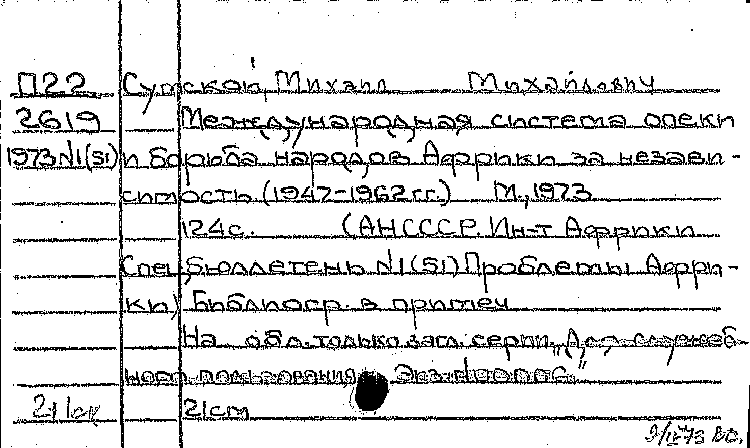 П22 Сумской, Михаил Михайлович
2619 Международная система опеки
1973 N1(51) и борьба народов Африки за незави-
симость (1947-1962 гг.) М., 1973
124с. (АН СССР. Ин-т Африки
Спец. бюллетень N1(51) Проблемы Афри-
ки) Библиогр. в примеч
На обл. только загл. серии. "Для служеб-
ного пользования
21см